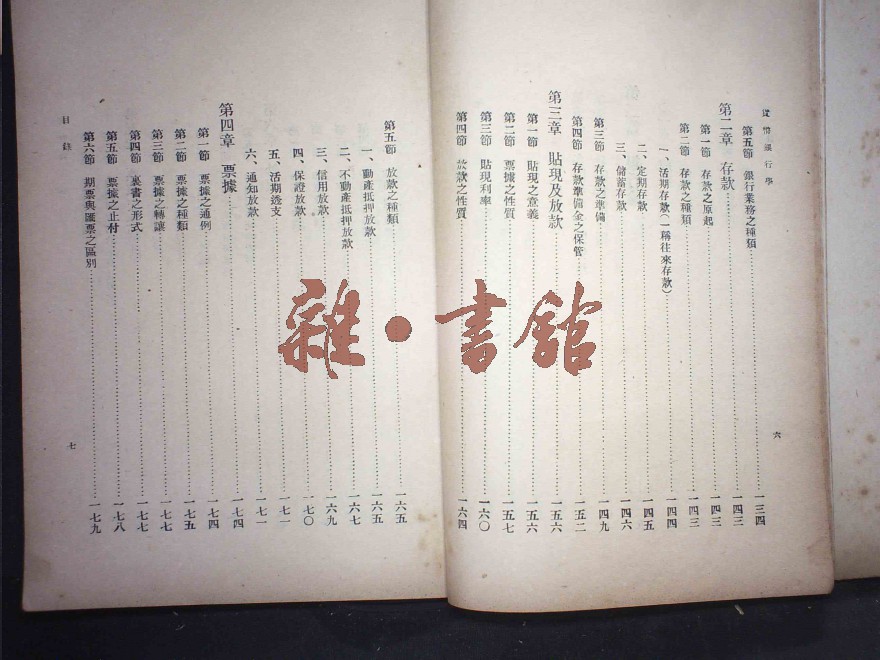 貨幣銀行學
六
第五節 銀行業務之種類 一三四
第二章 存款 一四三
第一節 存款之原起 一四三
第二節 存款之種類 一四三
一、活期存款(一稱往來存款) 一四四
二、定期存款 一四五
三、儲蓄存款 一四六
第三節 存款之準備 一四九
第四節 存款準備金之保管 一五二
第三章 貼現及放款 一五六
第一節 貼現之意義 一五六
第二節 票據之性質 一五七
第三節 貼現利率 一六〇
第四節 放款之性質 一六四
第五節 放款之種類 一六五
一、動產抵押放款 一六五
二、不動產抵押放款 一六七
三、信用放款 一六九
四、保證放款 一七〇
五、活期透支 一七一
六、通知放款 一七一
第四章 票據 一七四
第一節 票據之通例 一七四
第二節 票據之種類 一七五
第三節 票據之轉讓 一七七
第四節 裏書之形式 一七七
第五節 票據之止付 一七八
第六節 期票與匯票之區別 一七九
目錄
七
雜·書館